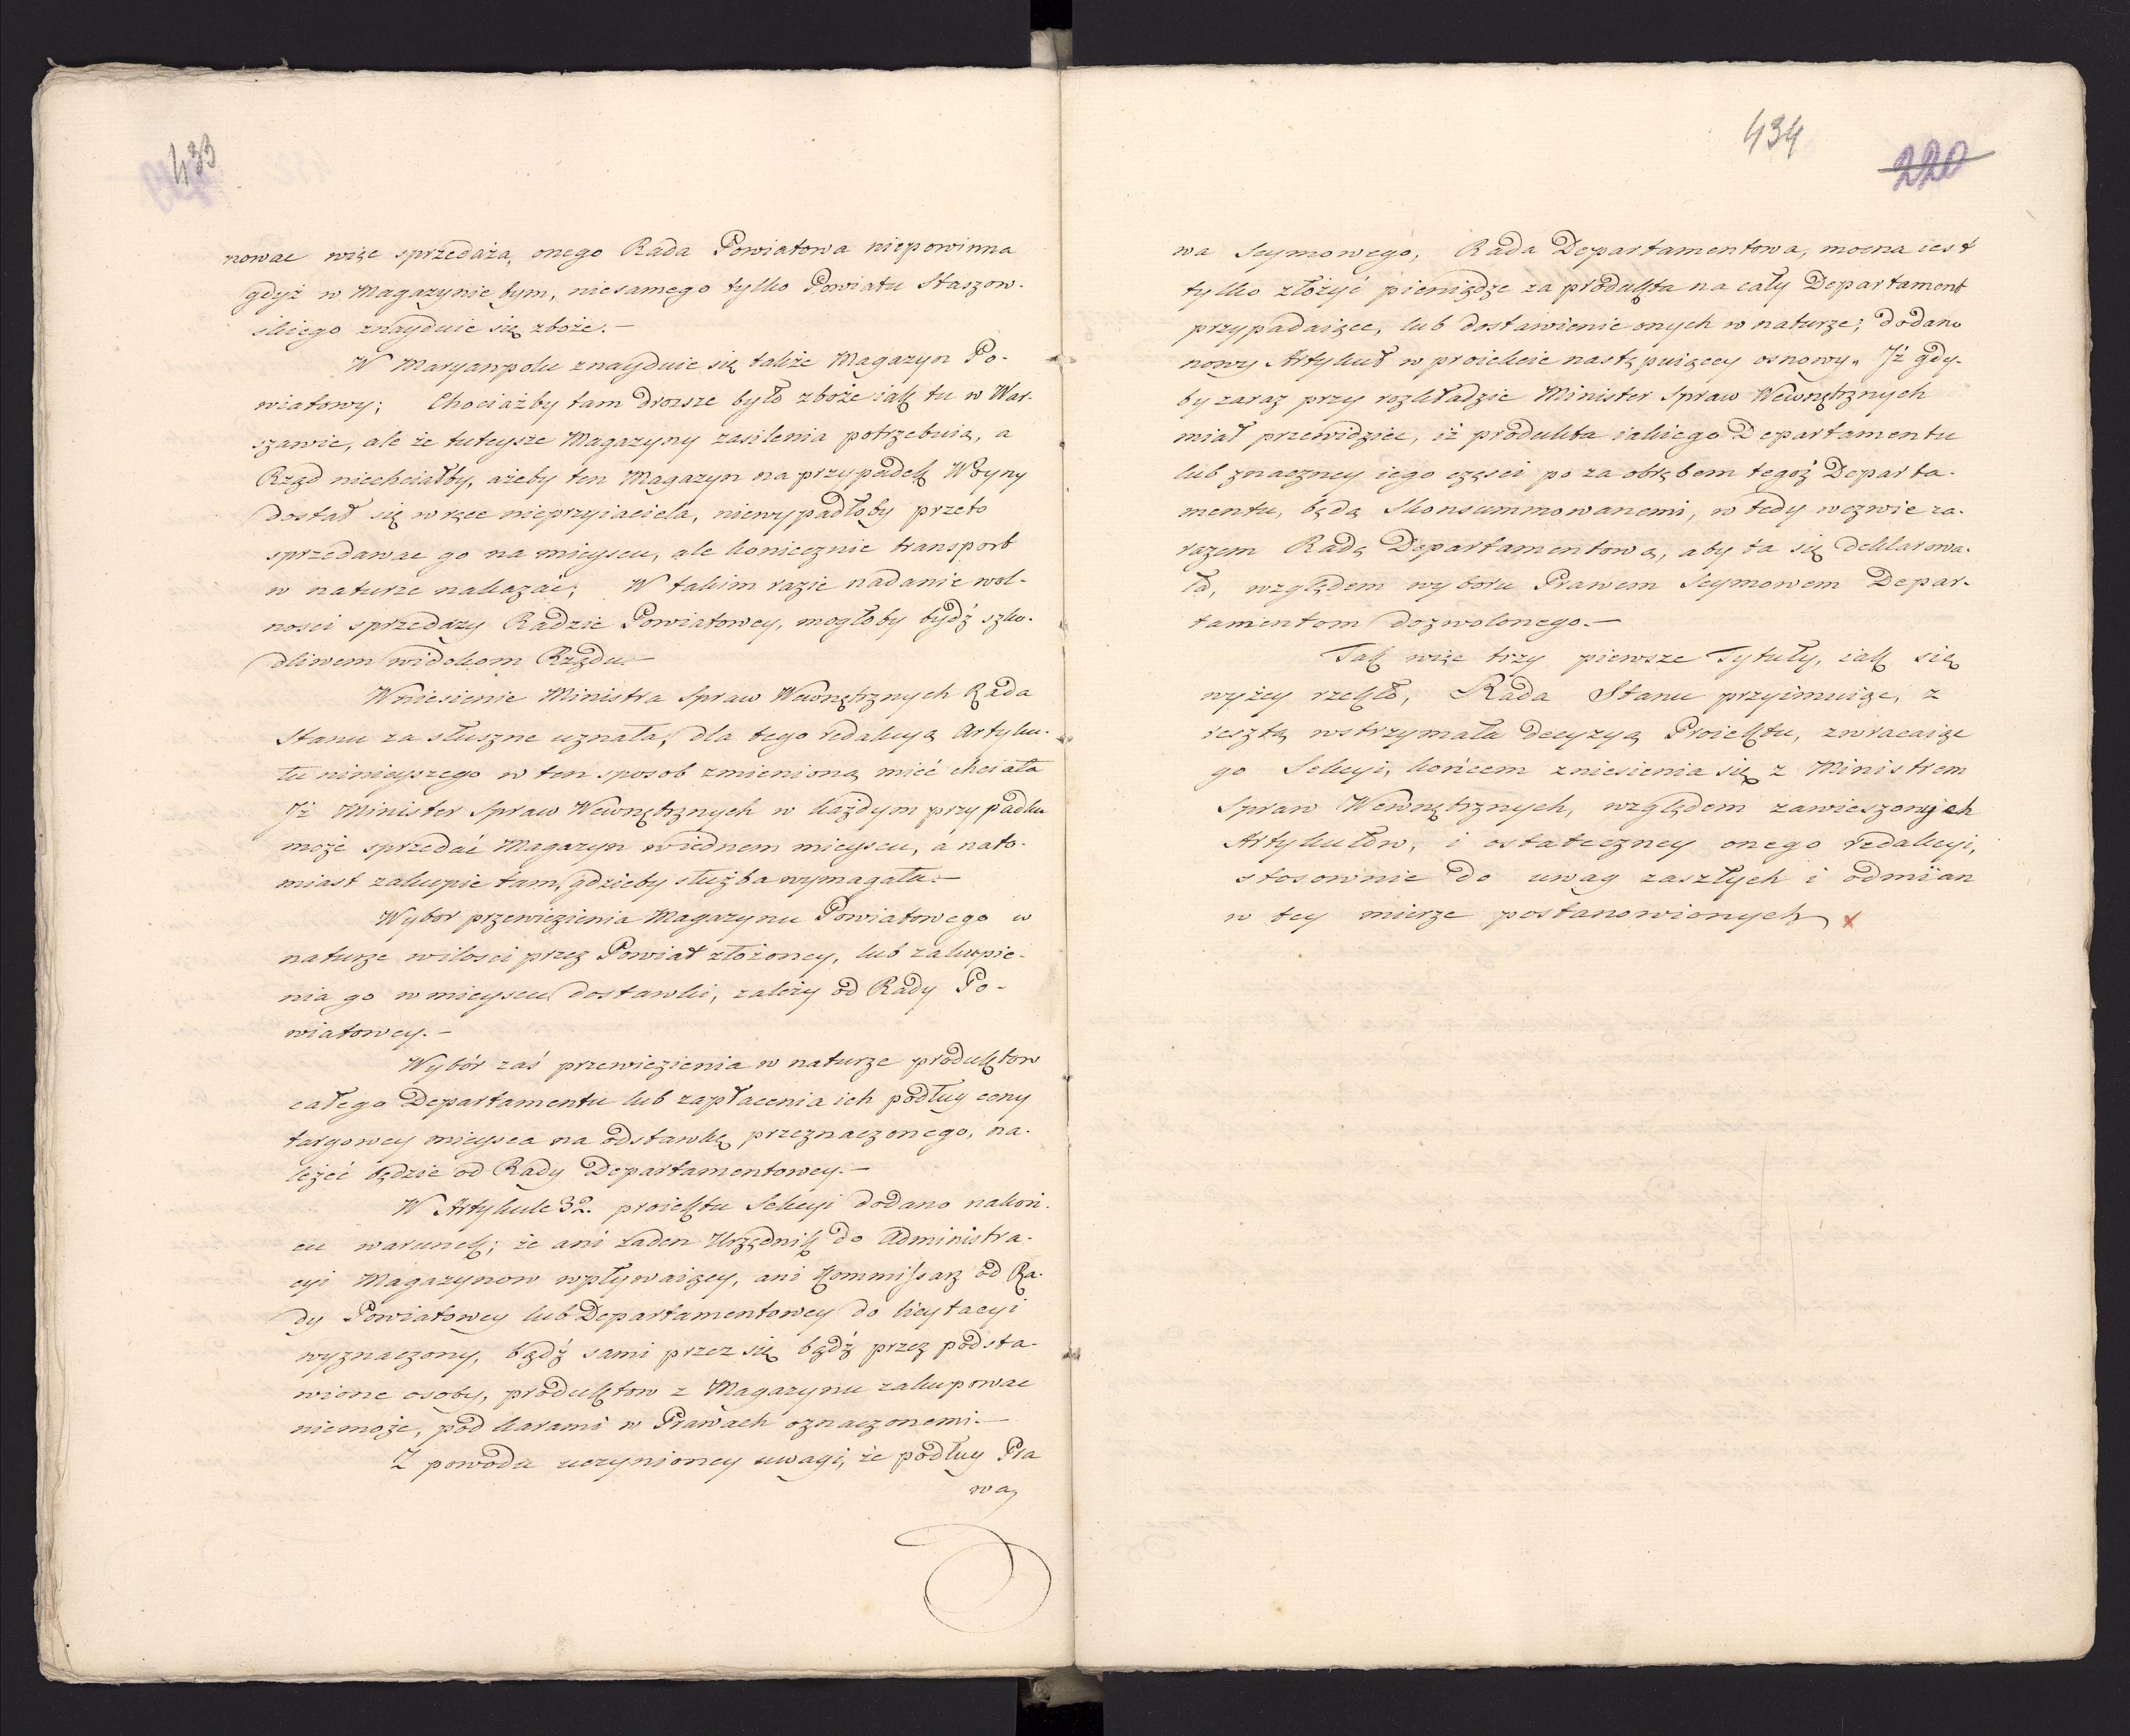 433
nowac więc sprzedażą onego Rada Powiatowa niepowinna
gdyż w Magazynie bym, niesamego tylko Powiatu Staszow-
skiego znayduie się zboże.—
W Maryanpolu znayduie się także Magazyn Po-
wiatowy; Chociażby tam drozsze było zboże iak tu w War-
szawie, ale że tuteysze Magazyny zasilenia potrzebuią, a
Rząd niechciałby, ażeby ten Magazyn na przypadek Woyny
dostał się w ręce nieprzyiaciela, niewypadłoby przeto
sprzedawac go na mieyscu, ale koniecznie transport
w naturze nakazać; W takim razie nadanie wol-
nosci sprzedazy Radzie Powiatowey, mogłoby bydź szko-
dliwem widokom Rządu.—
Wniesienie Ministra Spraw Wewnętrznych Rada
Stanu za słuszne uznała, dla tego redakcyą Artyku-
łu ninieyszego w ten sposob zmienioną mieć chciała
Iż Minister Spraw Wewnętrznych w każdym przypadku
może sprzedać Magazyn w iednem mieyscu, a nato-
miast zakupic tam, gdzieby służba wymagała.—
Wybor przewiezienia Magazynu Powiatowego w
naturze w ilosci przez Powiat złożoney, lub zakupie-
nia go w mieyscu dostawki, zależy od Rady Po-
wiatowey.—
Wybór zaś przewiezienia w naturze produktow
całego Departamentu lub zapłacenia ich podług ceny
targowey mieysca na odstawkę przeznaczonego, na-
leżeć będzie od Rady Departamentowey.—
W Artykule 32. proiektu Sekcyi dodano nakoń-
cu warunek; że ani żaden Urzędnik do Administra-
cyi Magazynow wpływaiący, ani Kommissarz od Ra-
dy Powiatowey lub Departamentowey do licytacyi
wyznaczony, bądź sami przez się bądź przez podsta-
wione osoby, produktow z Magazynu zakupowac
niemoże, pod karami w Prawach oznaczonemi.—
Z powodu uczynioney uwagi, że podług Pra
wa
434
220
wa Seymowego, Rada Departamentowa, mocna iest
tylko złożyć pieniądze za produkta na cały Departament
przypadaiące, lub dostawienie onych w naturze; dodano
nowy Artykuł w proiekcie następuiącey osnowy „ Iż gdy-
by zaraz przy rozkładzie Minister Spraw Wewnętrznych
miał przewidziec, iż produkta iakiego Departamentu
lub znaczney iego częsci po za obrębem tegoż Departa-
mentu, będą skonsummowanemi, wtedy wezwie za-
razem Radę Departamentową, aby ta się deklarowa-
ła, względem wyboru Prawem Seymowem Depar-
tamentom dozwolonego.—
Tak więc trzy pierwsze Tytuły, iak się
wyżey rzekło, Rada Stanu przyimuiąc, z
resztą wstrzymała decyzyą Proiektu, zwracaiąc
go Sekcyi, końcem zniesienia się z Ministrem
Spraw Wewnętrznych, względem zawieszonych
Artykułów, i ostateczney onego redakcyi,
stosownie do uwag zaszłych i odmian
w tey mierze postanowionych x